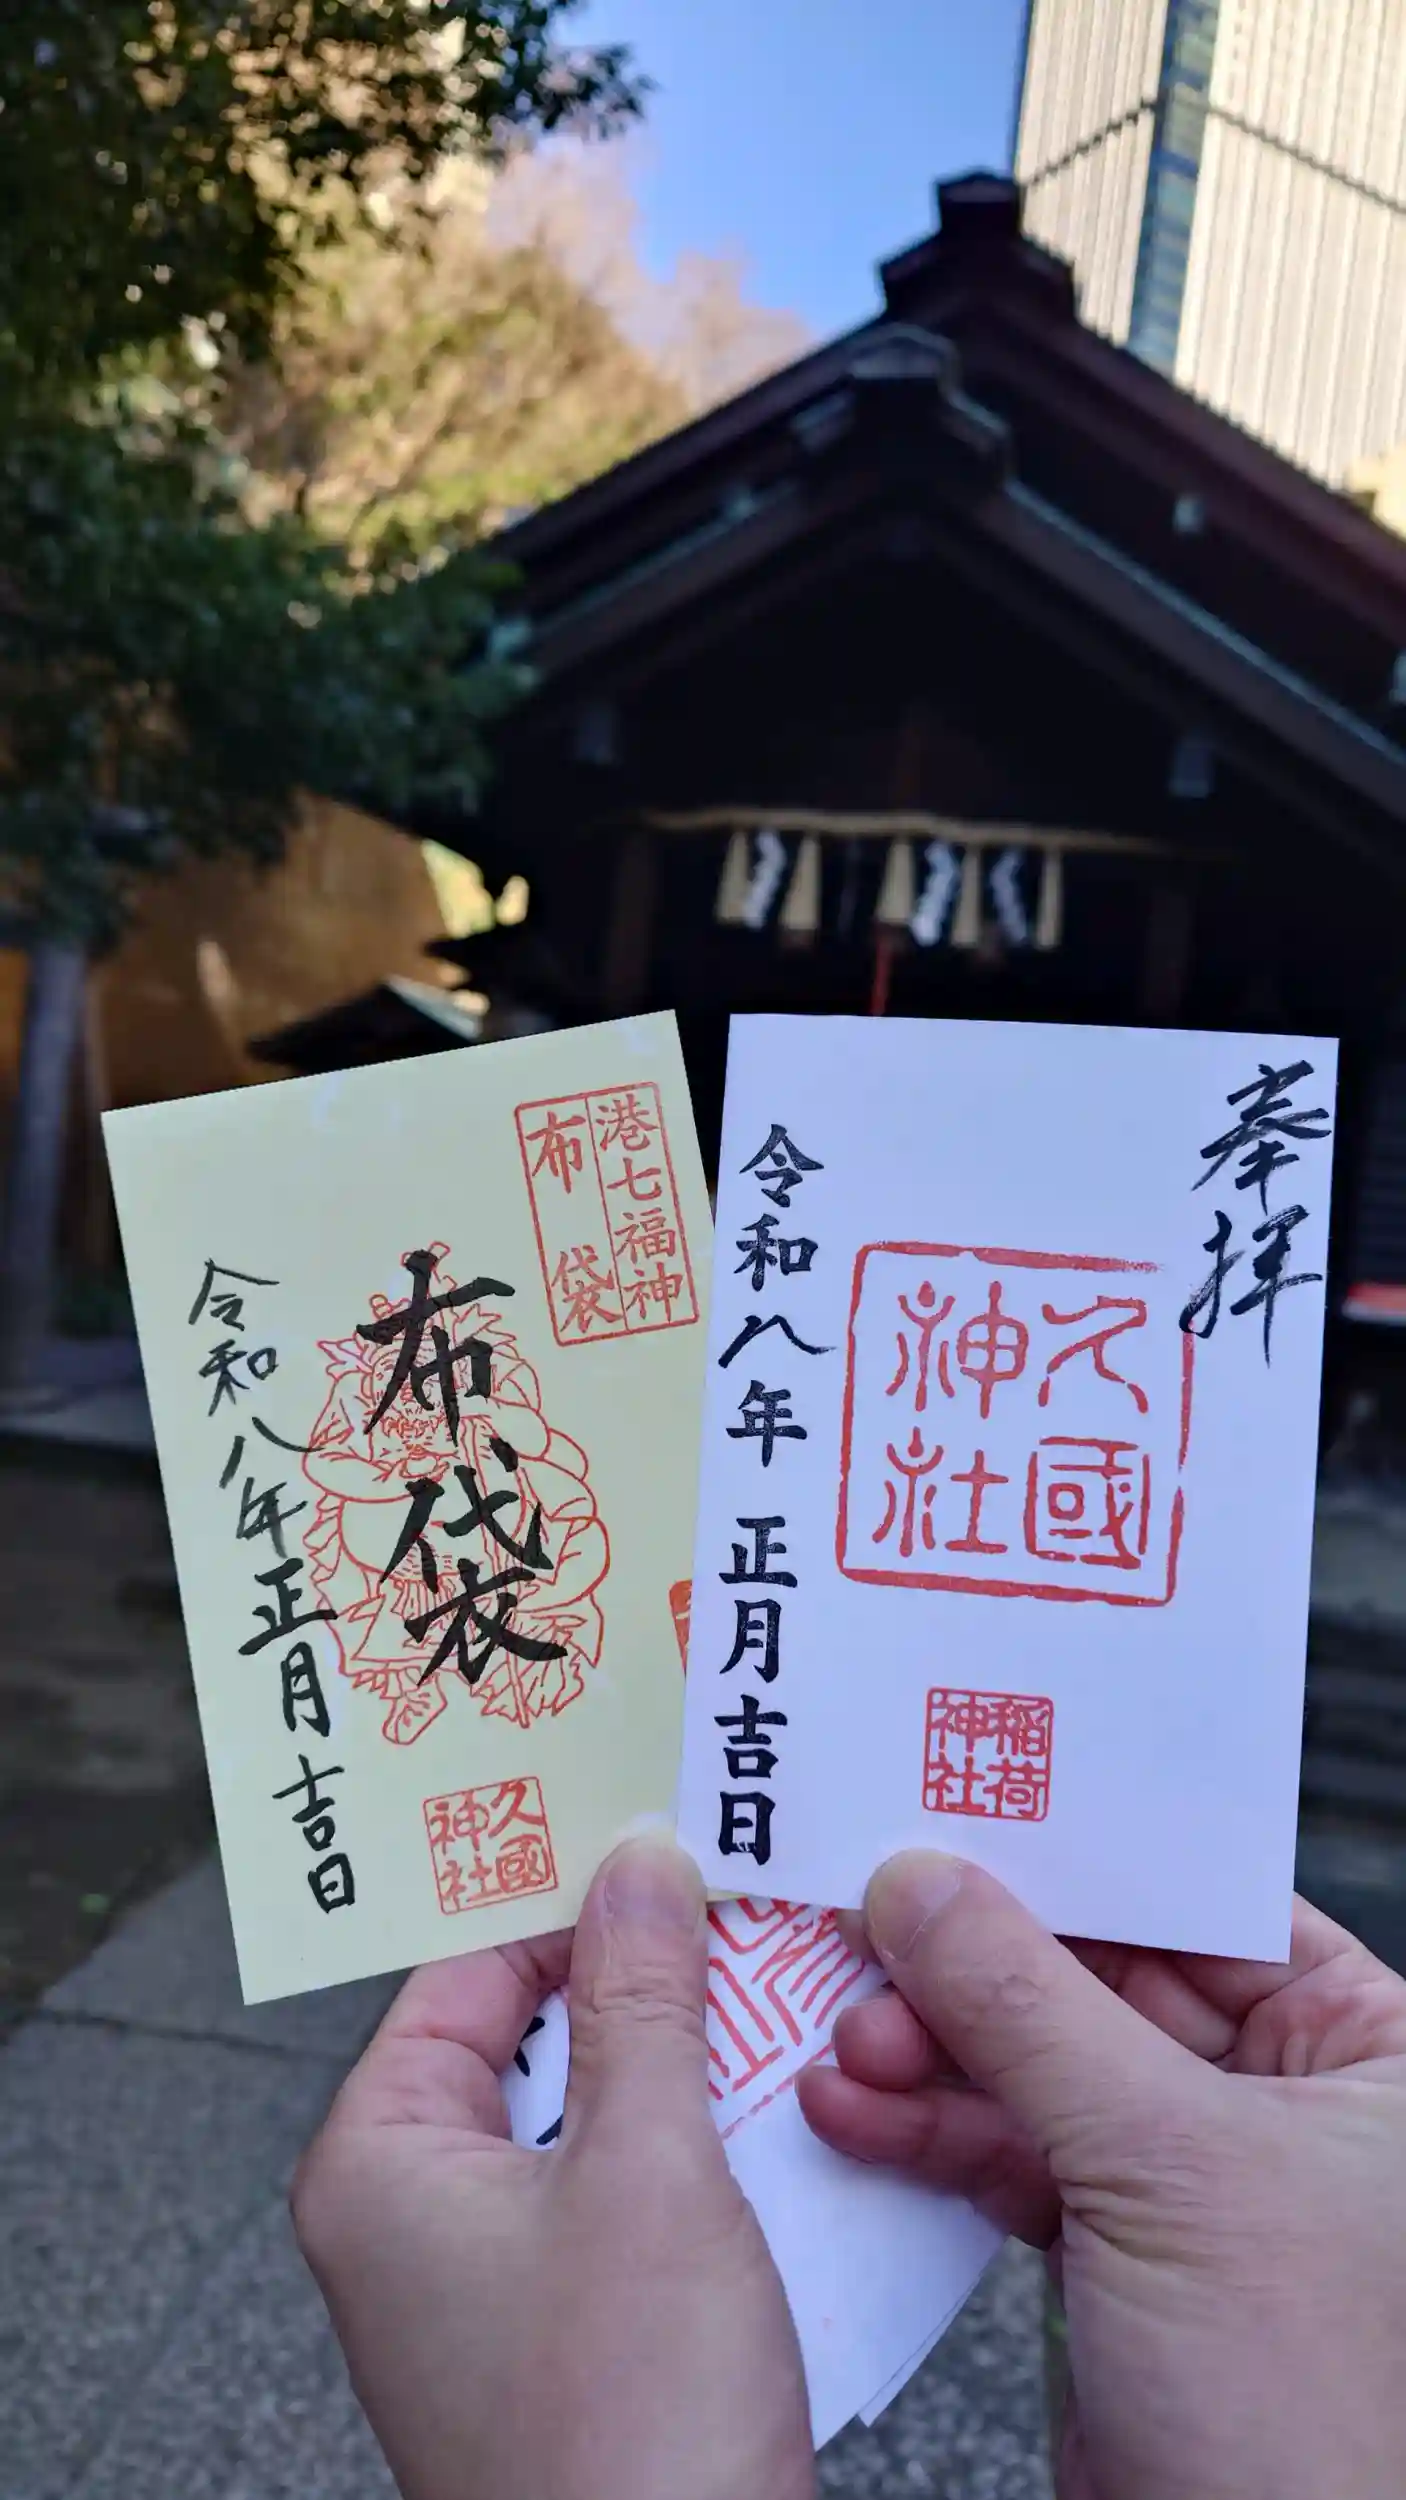 港七福神
布袋
布袋
令和八年正月吉日
久國神社
奉拝
久國神社
稲荷神社
令和八年 正月吉日